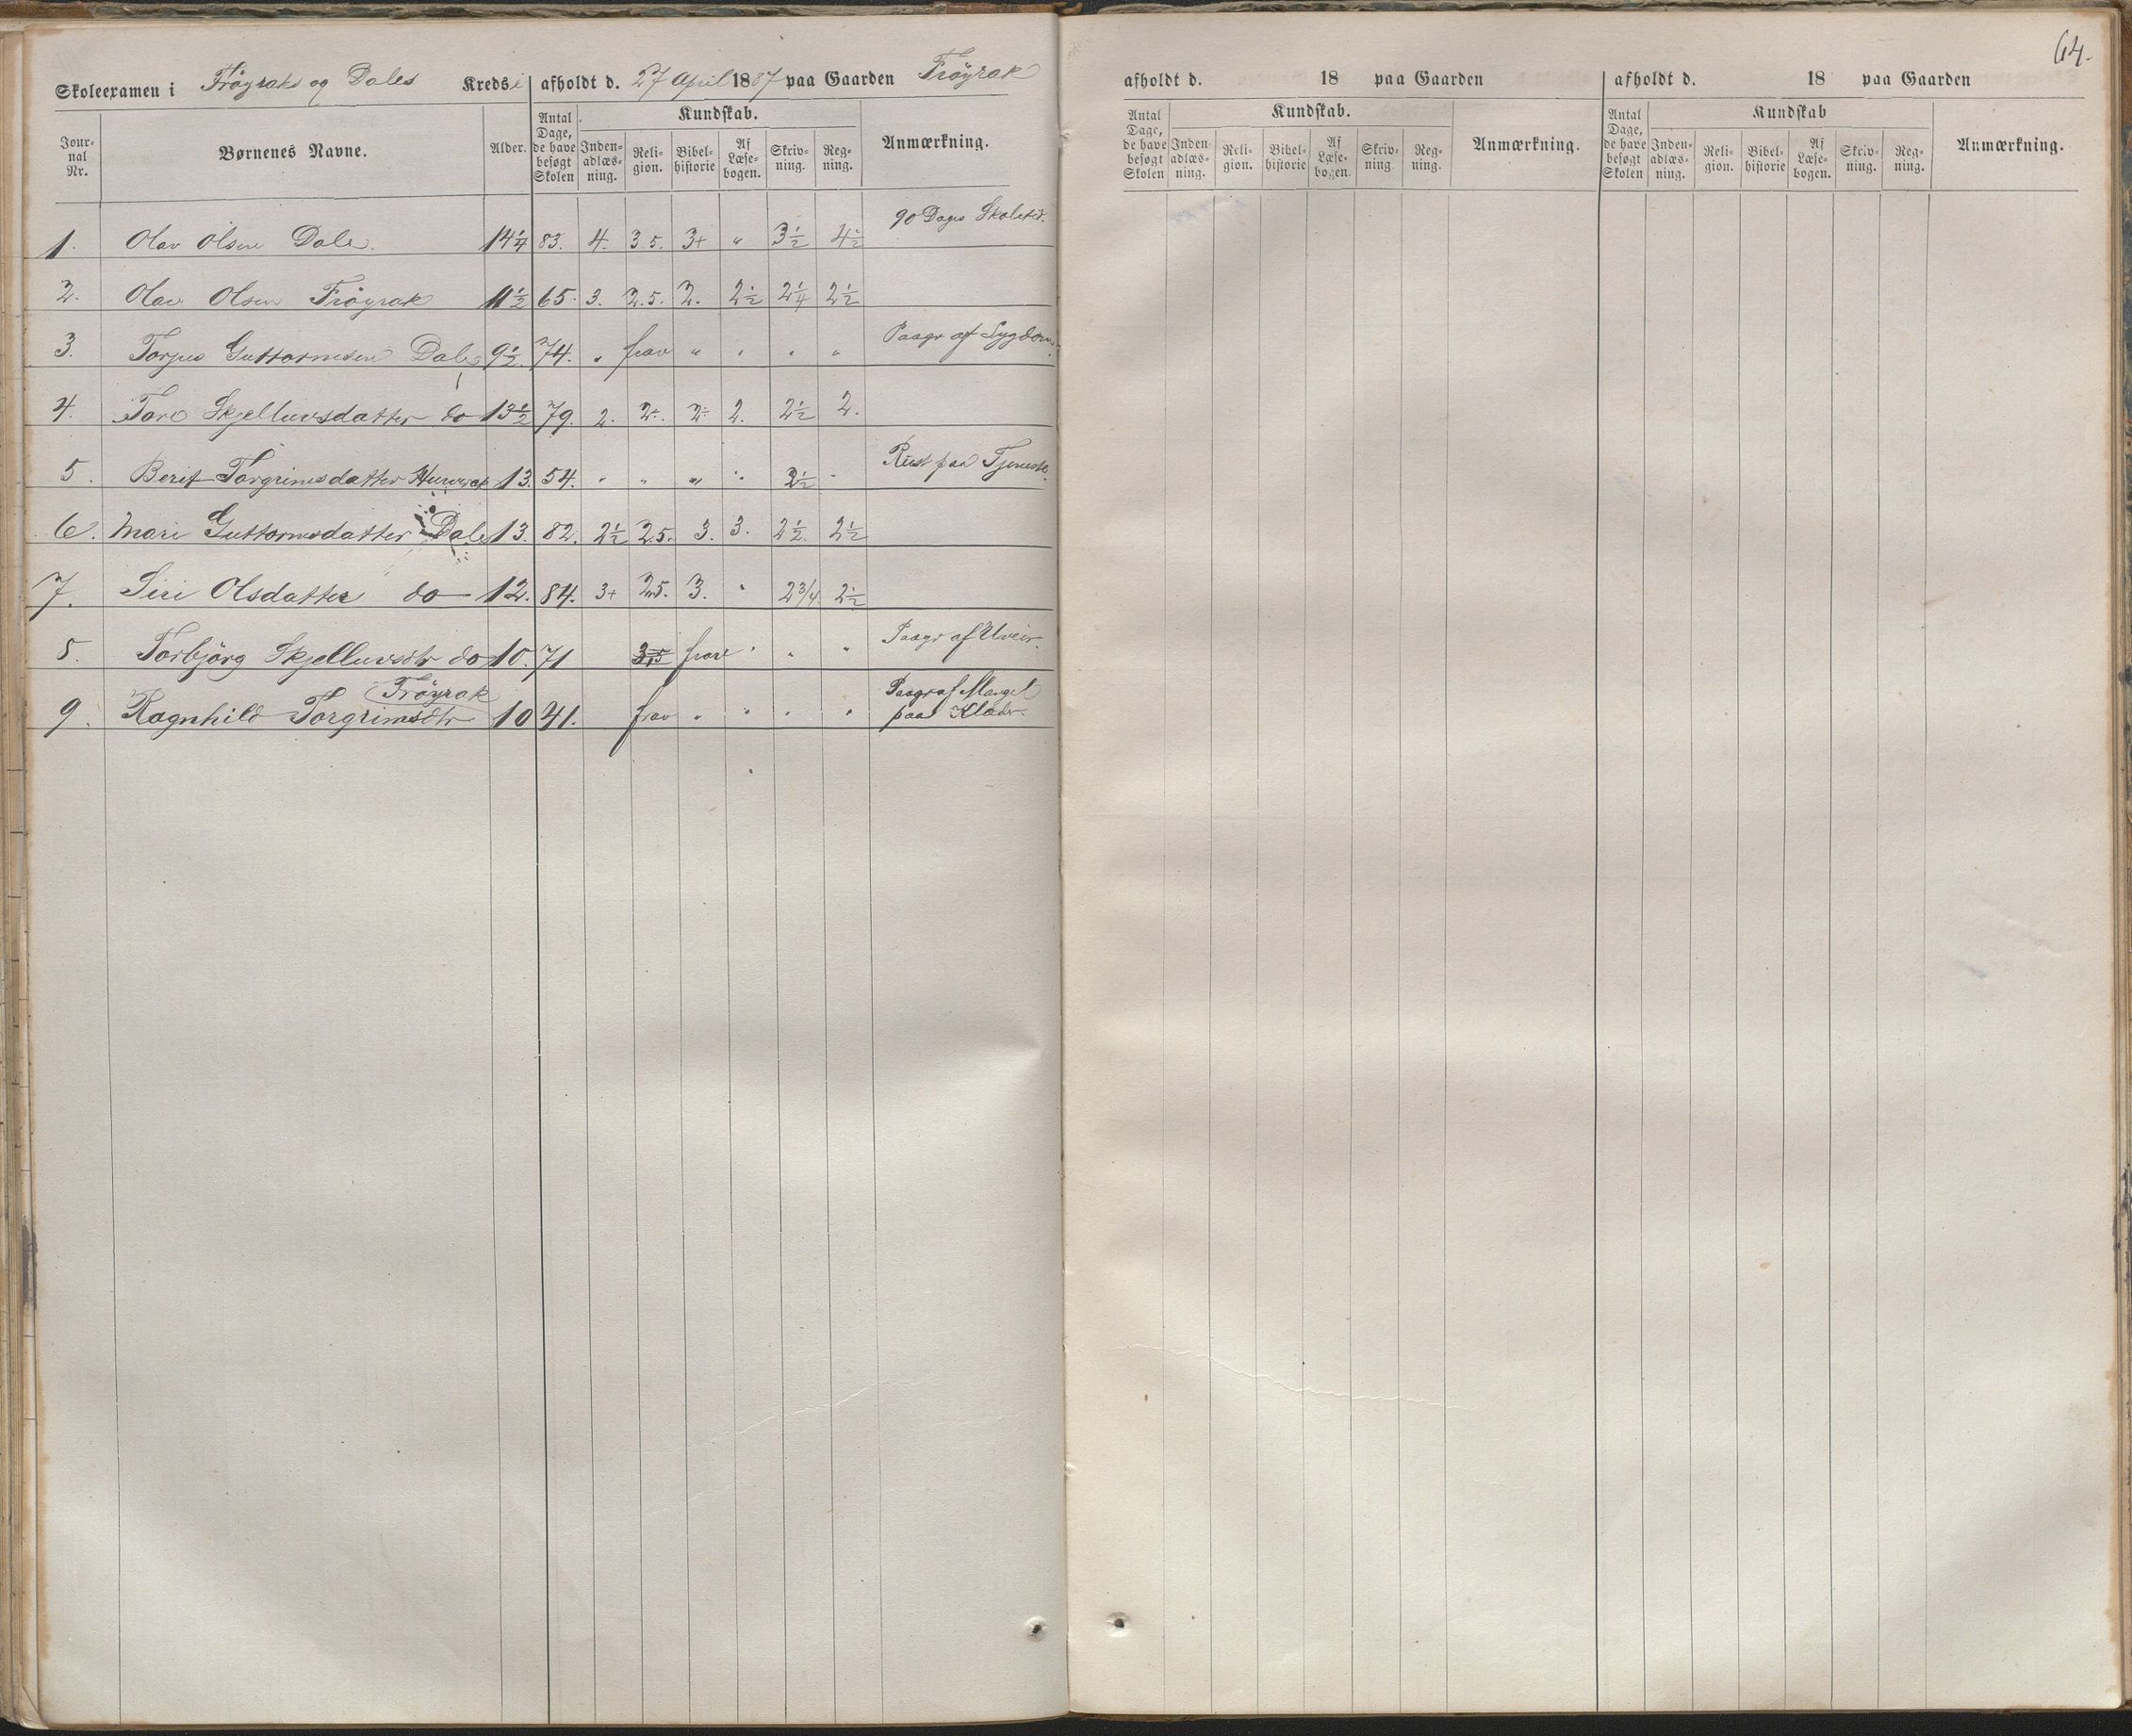 64.
Skoleexamen i Frøyraks og Dales Kredse afholdt d. 27 April 1887 paa Gaarden Frøyrak
Jour-nal Nr. Børnenes Navne. Alder. Antal Dage, de have besøgt Skolen Kundskab. Inden-adlæs-ning. Reli-gion. Bibel-historie Af Læse-bogen. Skriv-ning. Reg-ning. Anmærkning.
1. Olav Olsen Dale. 14 1/4 83. 4. 3.5. 3+ " 3 1/2 4 1/2 90 Dages Skoletid.
2. Olav Olsen Frøyrak 11 1/2 65. 3. 2.5. 2. 2 1/2 2 1/4 2 1/2
3. Torjus Guttormsen Dale 9 1/2 74. " frav " " " " Paagr af Sygdom.
4. Tore Skjelluvsdatter do 13 1/2 79. 2. 2÷. 2÷ 2. 2 1/2 2.
5. Berit Torgrimsdatter 13. 54. " " " " 2 1/2 " Reist paa Tjeneste.
6. Mari Guttormsdatter Dale 13. 82. 2 1/2 2.5. 3. 3. 2 1/2. 2 1/2
7. Siri Olsdatter do 12. 84. 3+ 2.5. 3. " 2 3/4 2 1/2
8. Torbjörg Skjelluvsdtr do 10. 71 3,5 frav " " " Paagr af Uveir.
9. Ragnhild Torgrimsdtr Frøyrak 10 41. frav " " " " Paagr af Mangel paa Klæder.
afholdt d. 18 paa Gaarden
Antal Dage, de have besøgt Skolen Kundskab. Inden-adlæs-ning. Reli-gion. Bibel-historie Af Læse-bogen. Skriv-ning. Reg-ning. Anmærkning.
afholdt d. 18 paa Gaarden
Antal Dage, de have besøgt Skolen Kundskab Inden-adlæs-ning. Reli-gion. Bibel-historie Af Læse-bogen. Skriv-ning. Reg-ning. Anmærkning.